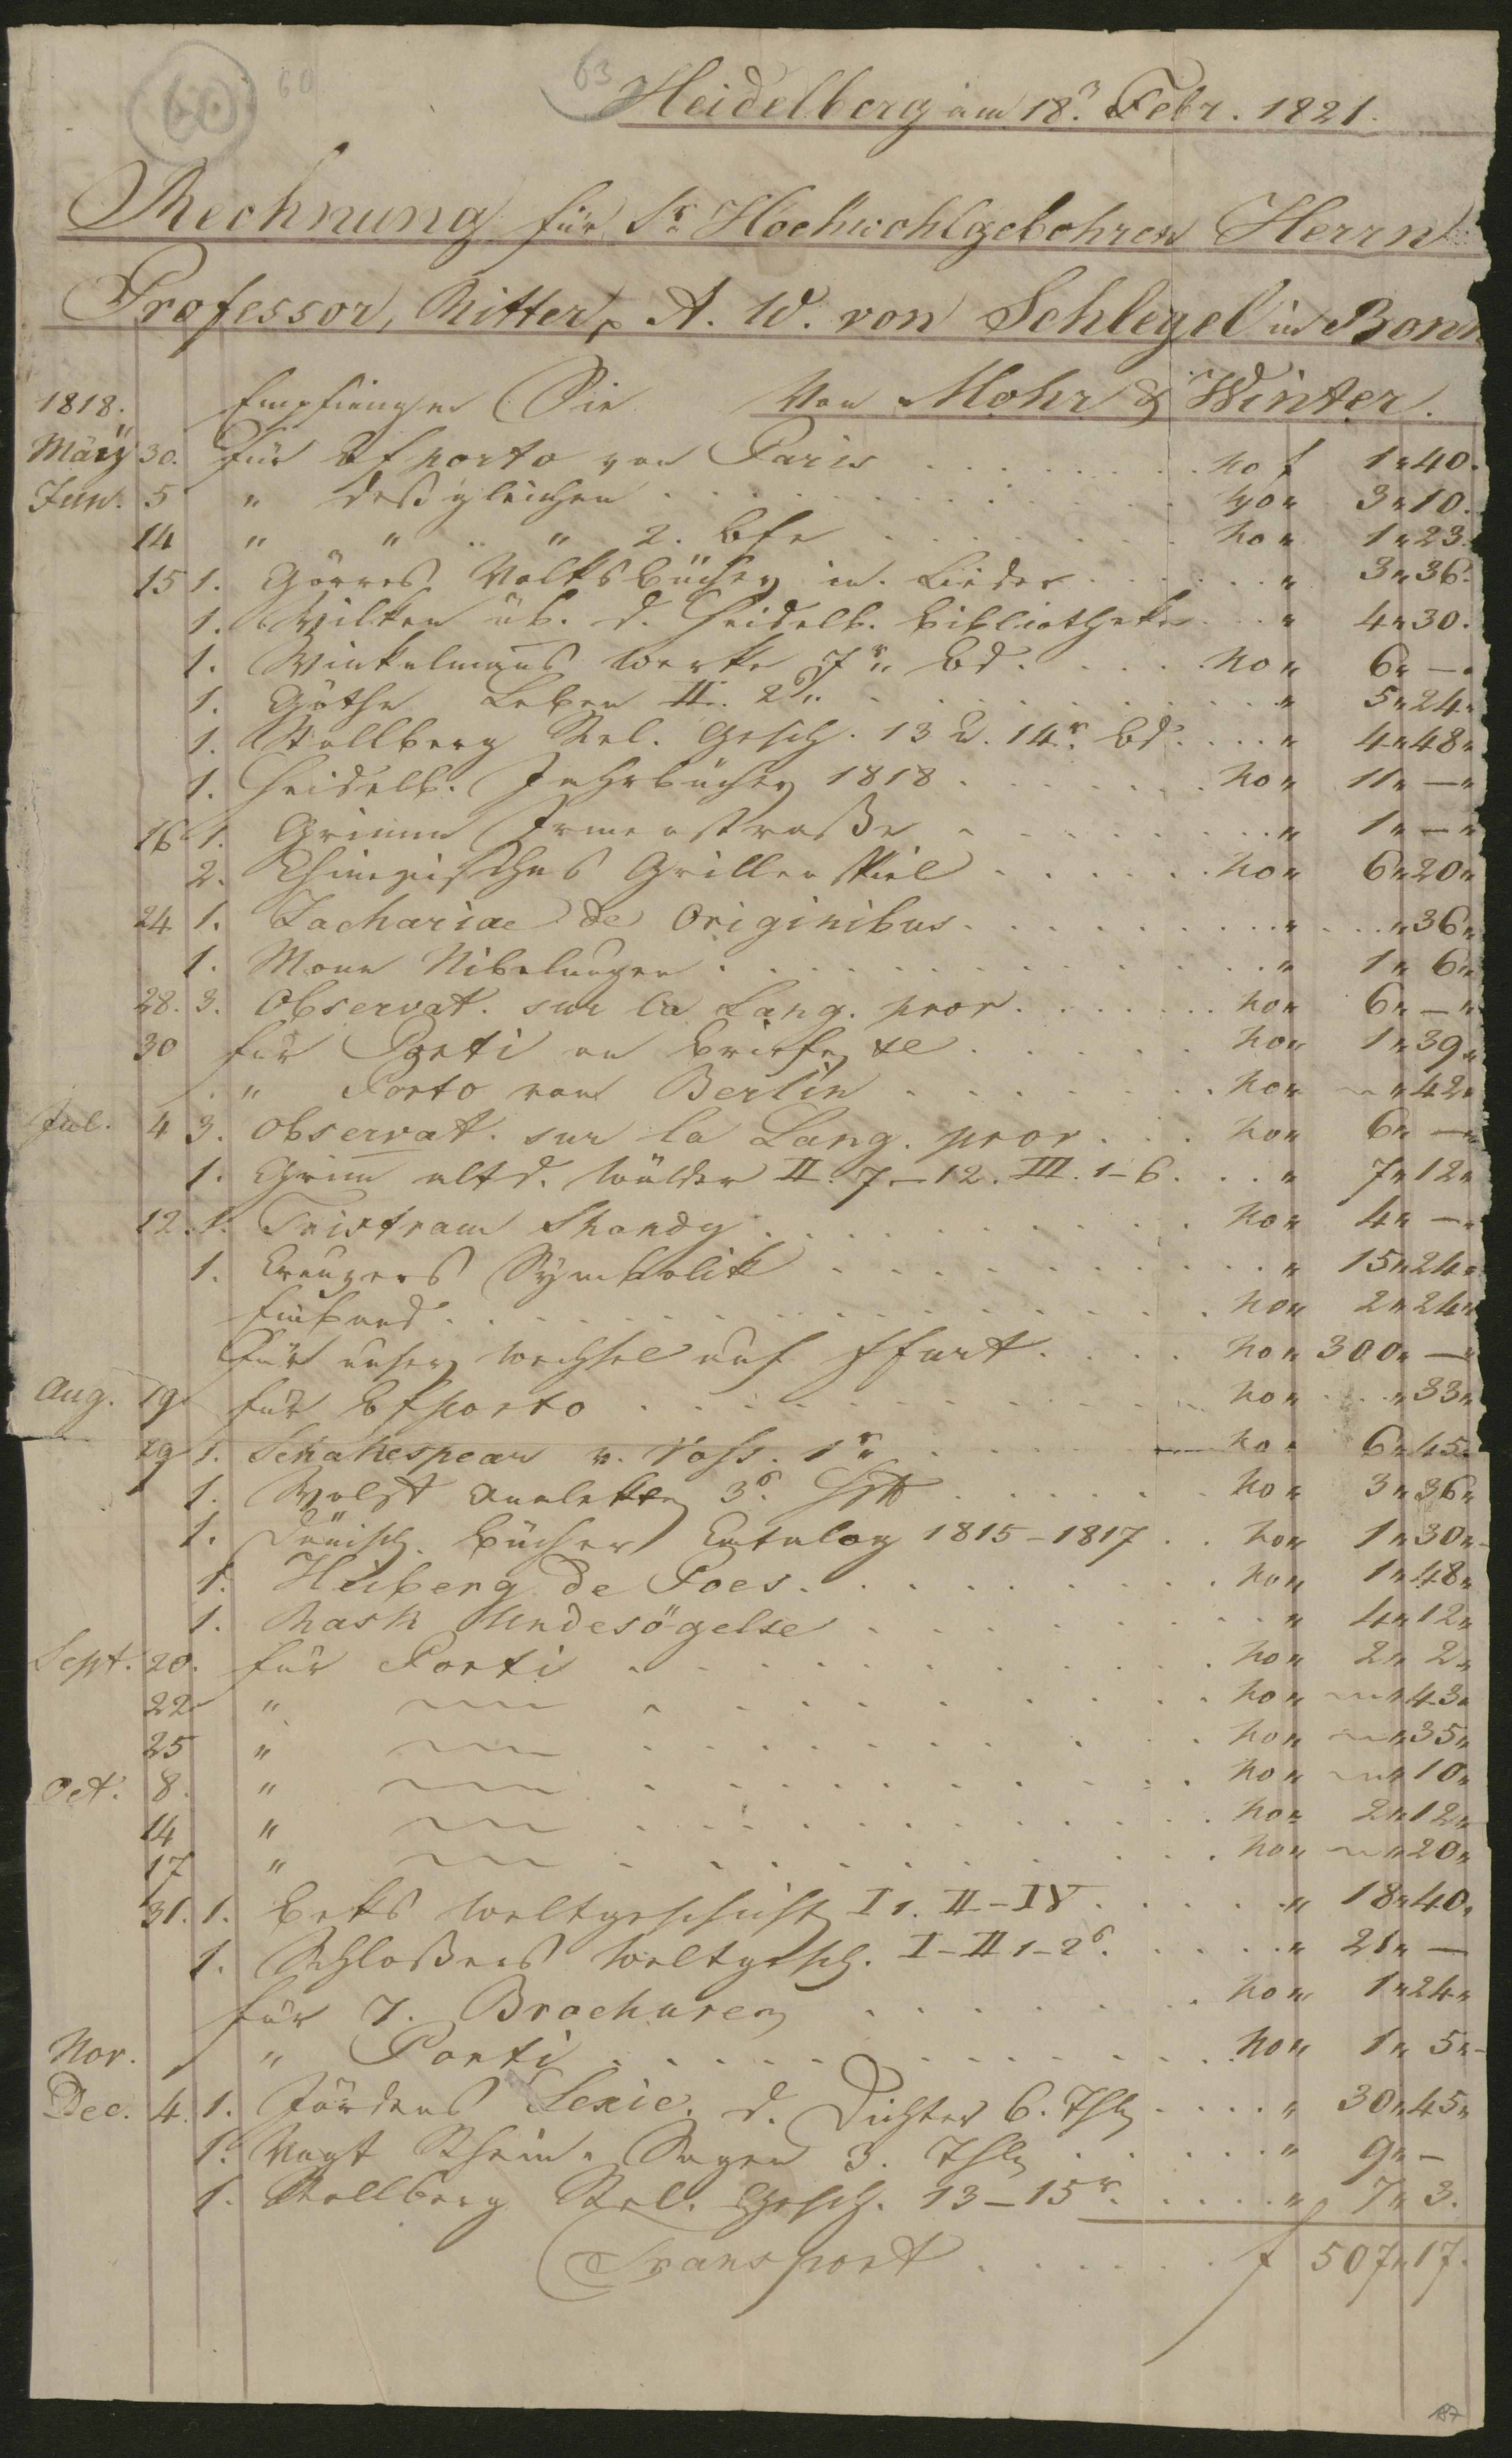 60 60 63
Heidelberg am 18. Febr. 1821.
Rechnung für Sr Hochwohlgebohren Herrn
Professor, Ritter, A. W. von Schlegel in Bonn
1818. Empfiengen Sie Von Mohr & Winter.
März 30. Für Bfporto von Paris . . . . no f 1 " 40.
Jun. 5 " deßgleichen . . . . no " 3 " 10.
14 " " " " 2. Bfe . . . . no " 1 " 23.
15 1. Görres Volksbücher u. Lieder . . . . " 3 " 36.
1. Wilken üb. d. Heidelb. Bibliotheken . . " 4 " 30.
1. Winkelmans Werke 7r Bd. . . . no " 6 " —
1. Göthe Leben II. 2 . . . . " 5 " 24 "
1. Stollberg Rel. Gesch. 13 u. 14r Bd. . . . " 4 " 48 "
1. Heidelb. Jahrbücher 1818 . . . . no " 11 " — "
16 1. Grimm Irmenstraße . . . . " 1 " — "
2. Chinesisches Grillenspiel . . . . no " 6 " 20 "
24 1. Zachariae de Originibus . . . . " . . . " 36 "
1. Mone Nibelungen . . . . " 1 " 6 "
28. 3. Observat. sur la Lang. prov. . . . no " 6 " — "
30 für Porti an Briefe . . . . no " 1 " 39 "
" Porto von Berlin . . . . no " ~ " 42 "
Jul. 4 3. Observat. sur la Lang. prov. . . . no " 6 " — "
1. Grim altd. Wälder II. 7–12. III. 1–6. . . . " 7 " 12 "
12. 1. Tristram Shandy . . . . no " 4 " — "
1. Creuzers Symbolik . . . . " 15 " 24 "
Einband . . . . no " 2 " 24 "
Für unser Wechsel auf Ffurt . . . . no " 300 " — "
Aug. 19 für Bfporto . . . . no " . . . " 33 "
29 1. Schakespear v. Voss. 1r . . . . no " 6 " 45.
1. Wolf Analekten 3s Hft . . . . no " 3 " 36 "
1. Dänisch. Bücher Catalog 1815–1817 . . no " 1 " 30 "
1. Heiberg de Poes. . . . no " 1 " 48 "
1. Rask Undesögelse . . . . " 4 " 12 "
Sept. 20. für Porti . . . . no " 2 " 2 "
22 " ~~ . . . . no " ~ " 43 "
25 " ~~ . . . . no " ~ " 35 "
Oct. 8. " ~~ . . . . no " ~ " 10 "
14 " ~~ . . . . no " 2 " 12 "
17 " ~~ . . . . no " ~ " 20 "
31. 1. Beks Weltgeschichte I 1. II–IV . . . . " 18 " 40 "
1. Schloßers Weltgesch. I–II 1–2 . . . . " 21 " —
für 7. Brochuren . . . . no " 1 " 24 "
Nov. " Porti . . . . no " 1 " 5 "
Dec. 4. 1. Jördens Lexic. d. Dichter 6. Thle . . . . " 30 " 45 "
1. Vogt Rhein. Sagen 3. Thle . . . . " 9 " —
1. Stollberg Rel. Gesch. 13–15r . . . . " 7 " 3.
Transport . . . . f 507 " 17.
187